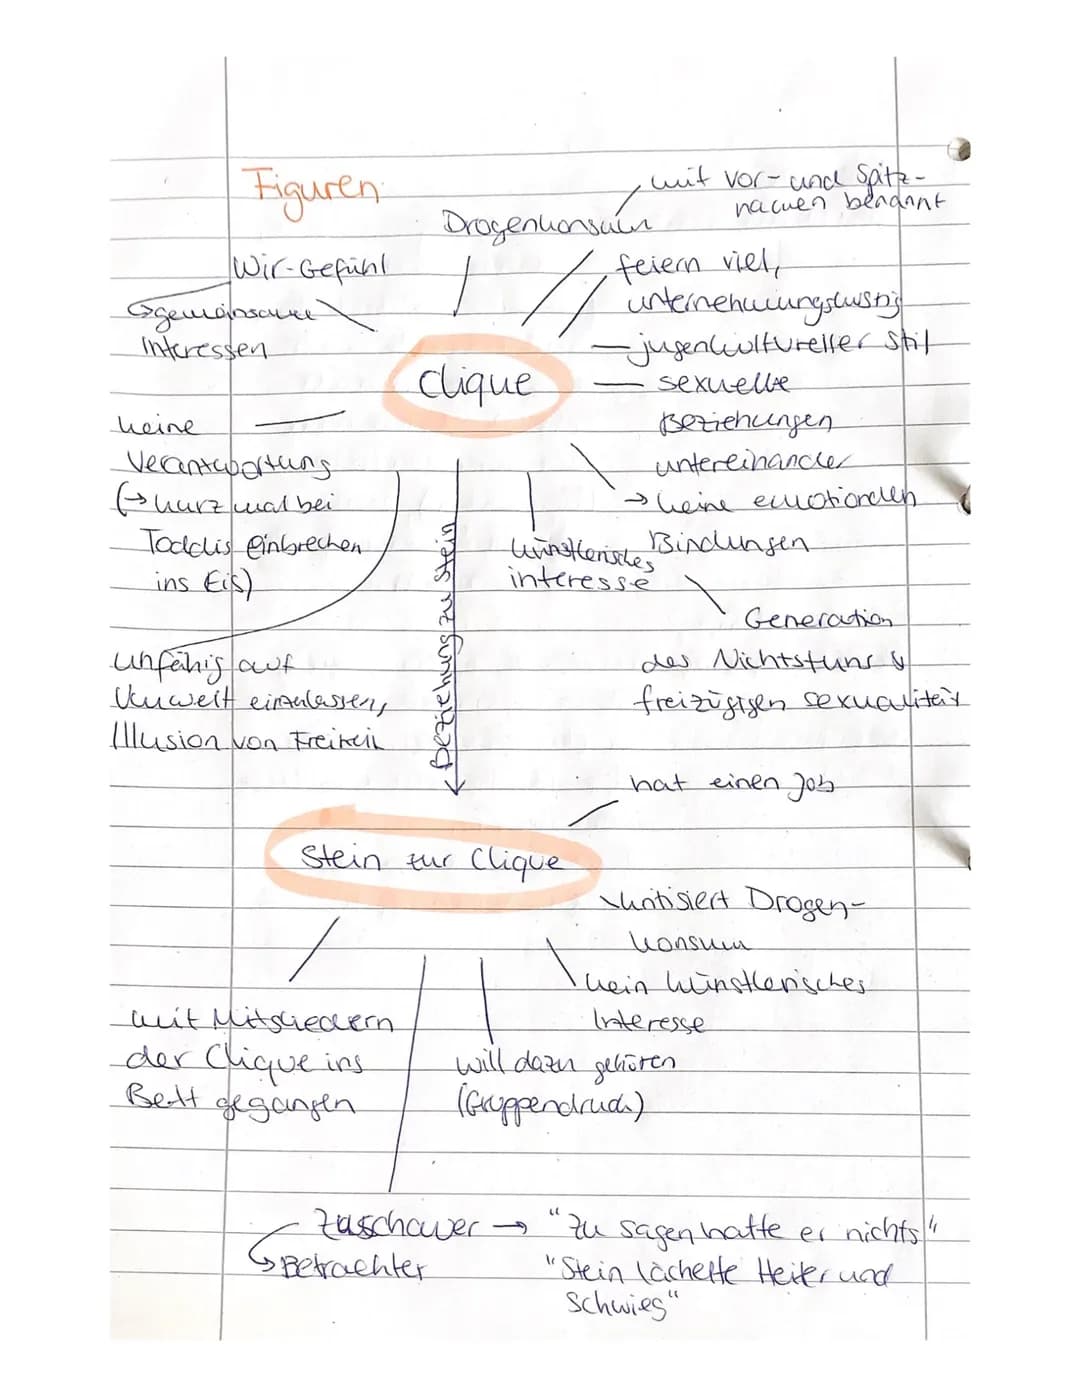 Figuren
mit Vor- und Spitz-
namen benannt
Drogenkonsum
Wir-Gefühl
↳gemeinsame
Interessen
feiern viel,
unternehmungslustig
jugenkultureller Stil
Clique
sexuelle
Beziehungen
untereinander
→ keine emotionalen
Bindungen
keine
Verantwortung
(→ kurz mal bei
Toddis einbrechen
ins Eis)
künstlerisches
interesse
Generation
des Nichtstuns &
freizügigen sexualität
unfähig auf
Umwelt einzulassen,
Illusion von Freiheit
Beziehung zu Stein
hat einen Job
Stein zur Clique
kritisiert Drogen-
konsum
kein künstlerisches
Interesse
mit Mitgliedern
der Clique ins
Bett gegangen
will dazu gehören
(Gruppendruck)
Zuschauer → "Zu sagen hatte er nichts"
↳ Betrachter
"Stein lächelte Heiter und
Schwieg"